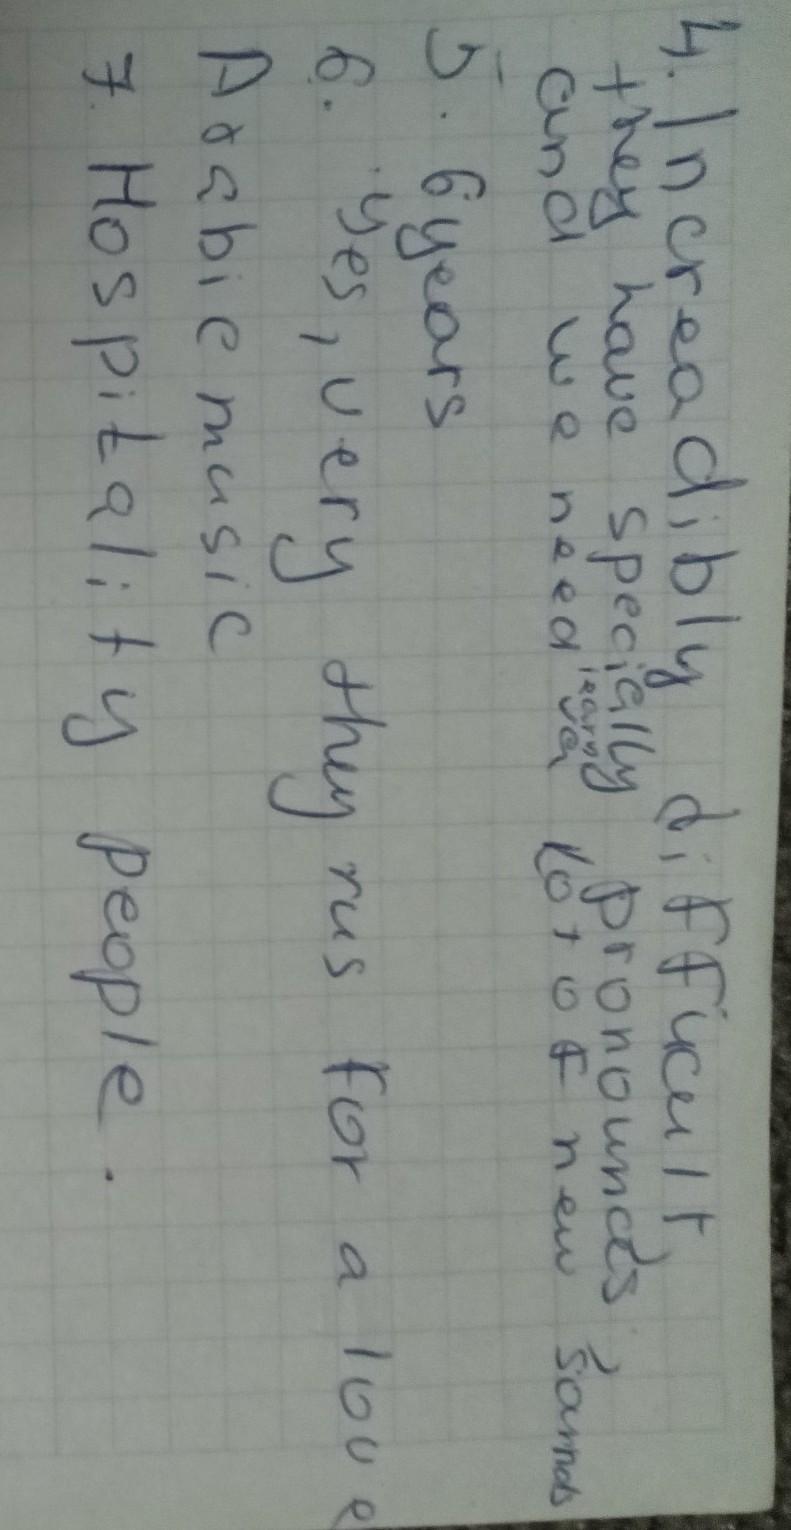 4. Increadibly difficult,
they have specially pronounces
and we need learn a lot of new sounds
5. 6 years
6. yes, very they rus for a love
Arabic music
7. Hospitality people.